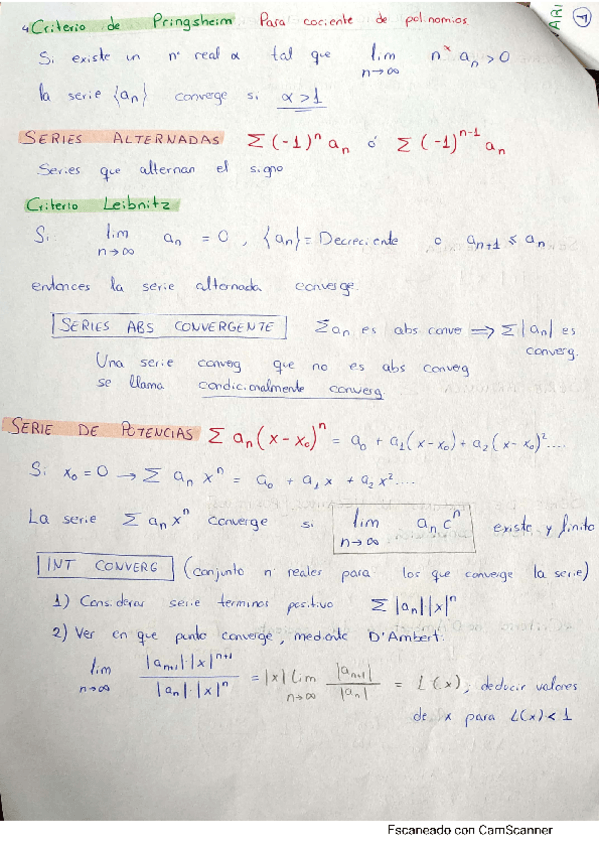 4 Criterio de Pringsheim Para cociente de polinomios
Si existe un nº real α tal que lim n→∞ n^α a_n > 0
la serie {a_n} converge si α > 1
SERIES ALTERNADAS Σ(-1)^n a_n ó Σ(-1)^{n-1} a_n
Series que alternan el signo
Criterio Leibnitz
Si lim n→∞ a_n = 0, {a_n} = Decreciente o a_{n+1} ≤ a_n
entonces la serie alternada converge
SERIES ABS CONVERGENTE Σa_n es abs conve ⟹ Σ|a_n| es
converg.
Una serie converg que no es abs converg
se llama condicionalmente converg
SERIE DE POTENCIAS Σ a_n(x-x_0)^n = a_0 + a_1(x-x_0) + a_2(x-x_0)^2....
Si x_0=0 → Σ a_n x^n = a_0 + a_1x + a_2x^2....
La serie Σ a_n x^n converge si lim n→∞ a_n c^n existe y finito
INT CONVERG (conjunto n reales para los que converge la serie)
1) Considerar serie terminos positivo Σ|a_n||x|^n
2) Ver en que punto converge, mediante D'Ambert
lim n→∞ |a_{n+1}|·|x|^{n+1} / |a_n|·|x|^n = |x| lim n→∞ |a_{n+1}| / |a_n| = L(x), deducir valores
de x para L(x)<1
Escaneado con CamScanner